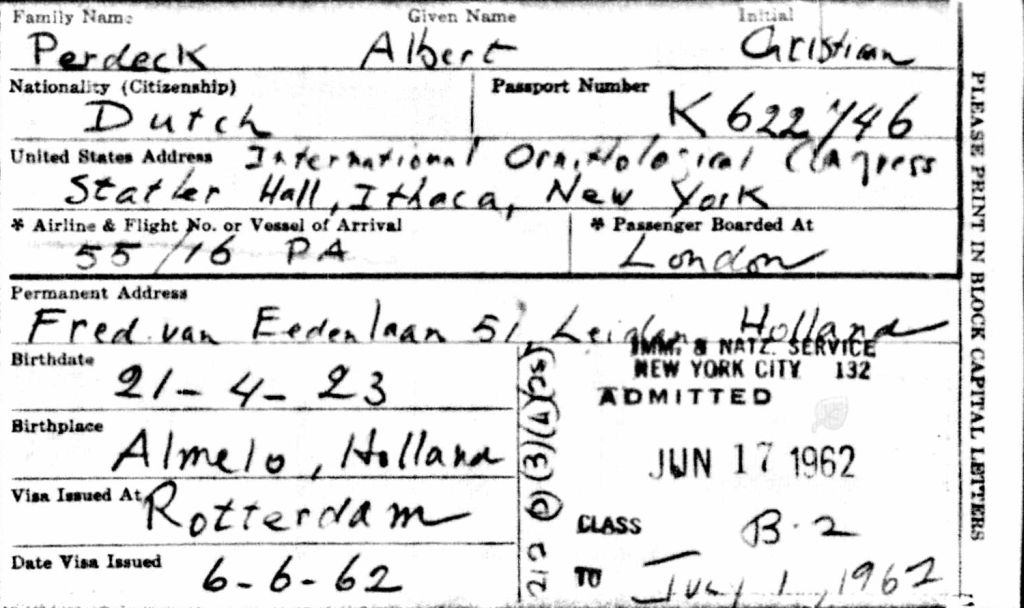 Family Name Given Name Initial
Perdeck Albert Christiaan
Nationality (Citizenship) Passport Number
Dutch K 622746
United States Address International Ornithological Congress
Statler Hall, Ithaca, New York
* Airline & Flight No. or Vessel of Arrival * Passenger Boarded At
55/16 PA London
Permanent Address
Fred. van Eedenlaan 51, Leiden, Holland
IMM. & NATZ. SERVICE
Birthdate NEW YORK CITY 132
21-4-23 ADMITTED
Birthplace
Almelo, Holland JUN 17 1962
Visa Issued At
Rotterdam CLASS B-2
Date Visa Issued
6-6-62 TO July 1, 1962
PLEASE PRINT IN BLOCK CAPITAL LETTERS